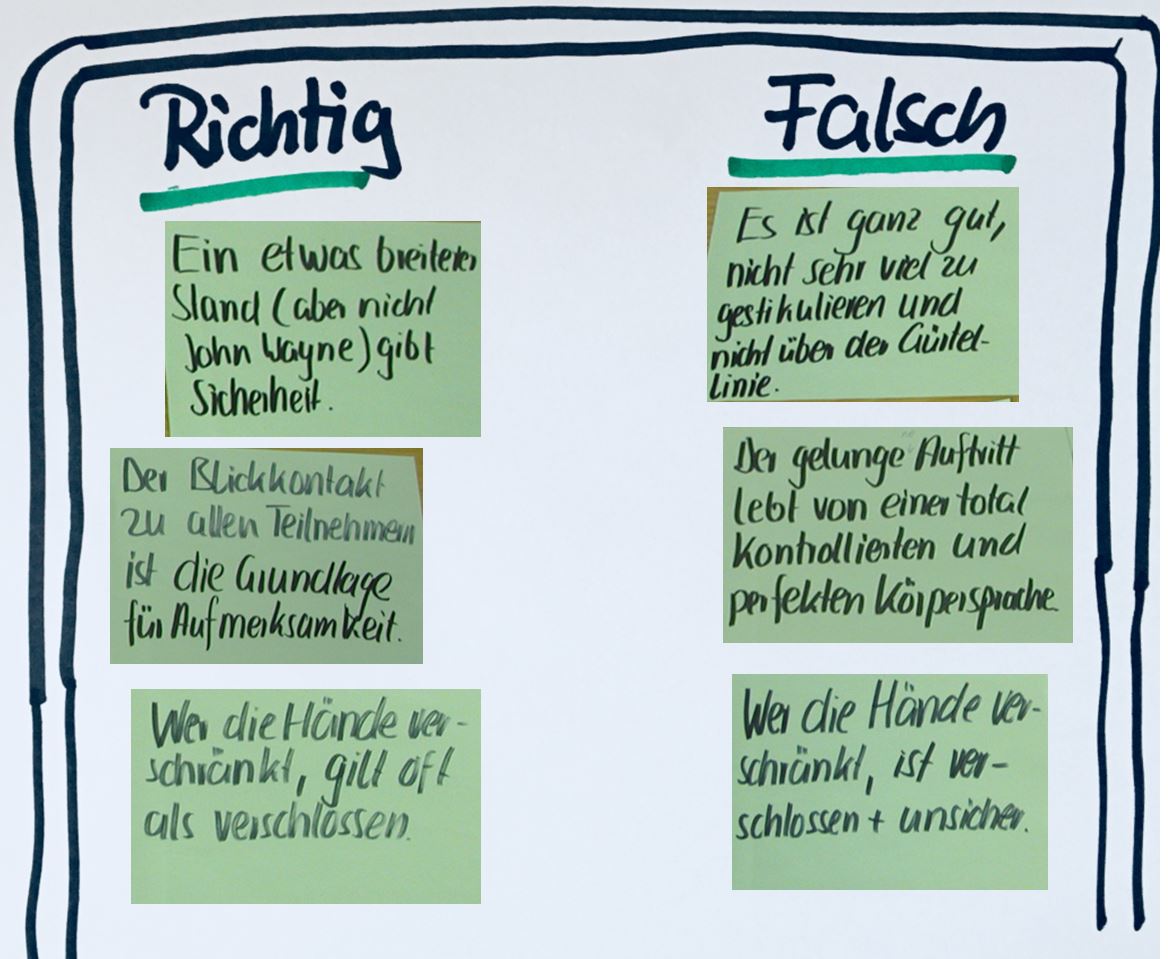 Richtig
Ein etwas breiterer
Stand (aber nicht
John Wayne) gibt
Sicherheit.
Der Blickkontakt
zu allen Teilnehmern
ist die Grundlage
für Aufmerksamkeit.
Wer die Hände ver-
schränkt, gilt oft
als verschlossen.
Falsch
Es ist ganz gut,
nicht sehr viel zu
gestikulieren und
nicht über der Gürtel-
linie.
Der gelunge Auftritt
lebt von einer total
kontrollierten und
perfekten Körpersprache.
Wer die Hände ver-
schränkt, ist ver-
schlossen + unsicher.